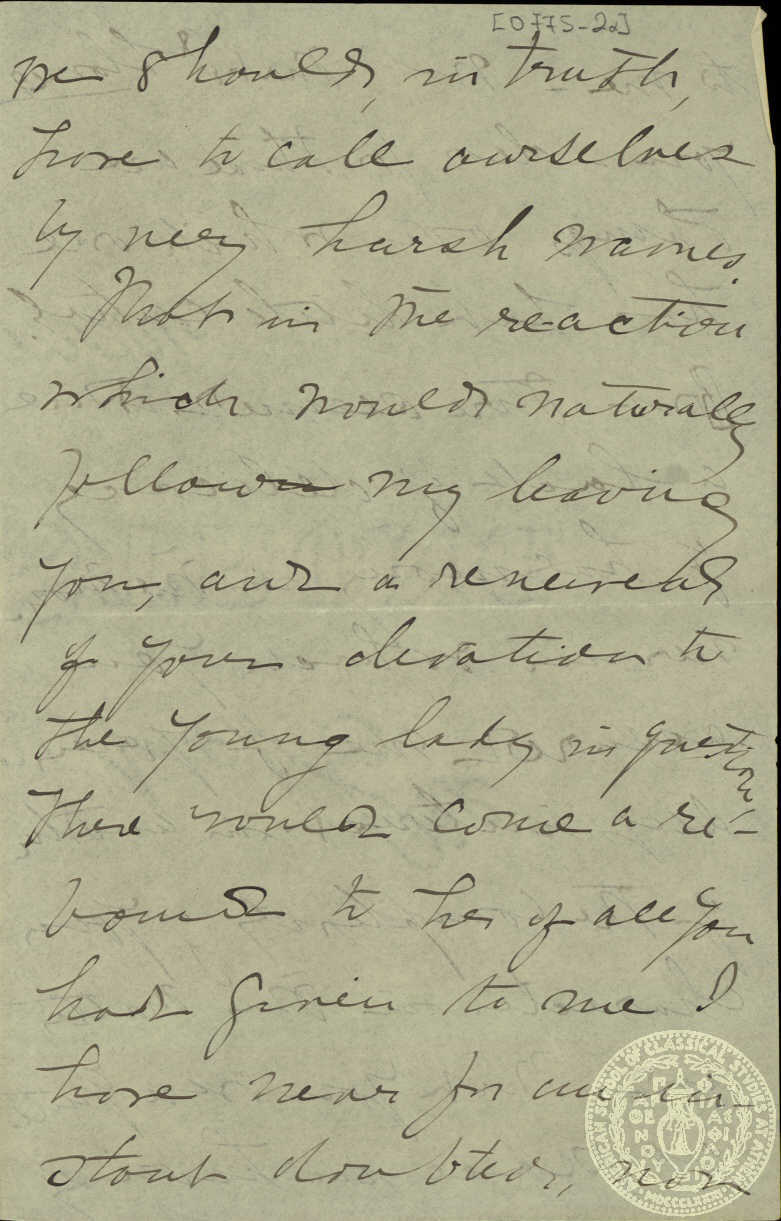 [0775-2a]
we should, in truth,
have to call ourselves
by very harsh names.
That in the re-action
which would naturally
follow my leaving
you, and a renewal
of your devotion to
the young lady in question,
there would come a re-
bound to her of all you
had given to me I
have never for an in-
stant doubted, nor
AMERICAN SCHOOL OF CLASSICAL STUDIES AT ATHENS
MDCCCLXXXI